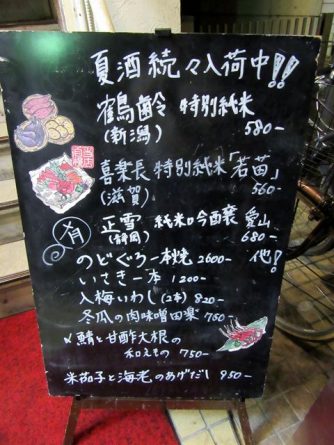 夏酒続々入荷中!!
鶴齢 特別純米
(新潟) 580-
喜楽長 特別純米「若苗」
(滋賀) 560-
正雪 純米吟醸 愛山
(静岡) 680-
のどぐろ一本焼 2600- 他!
いさき一本 1200-
入梅いわし(2本) 820-
冬瓜の肉味噌田楽 750-
〆鯖と甘酢大根の
和えもの 750-
米茄子と海老のあげだし 950-